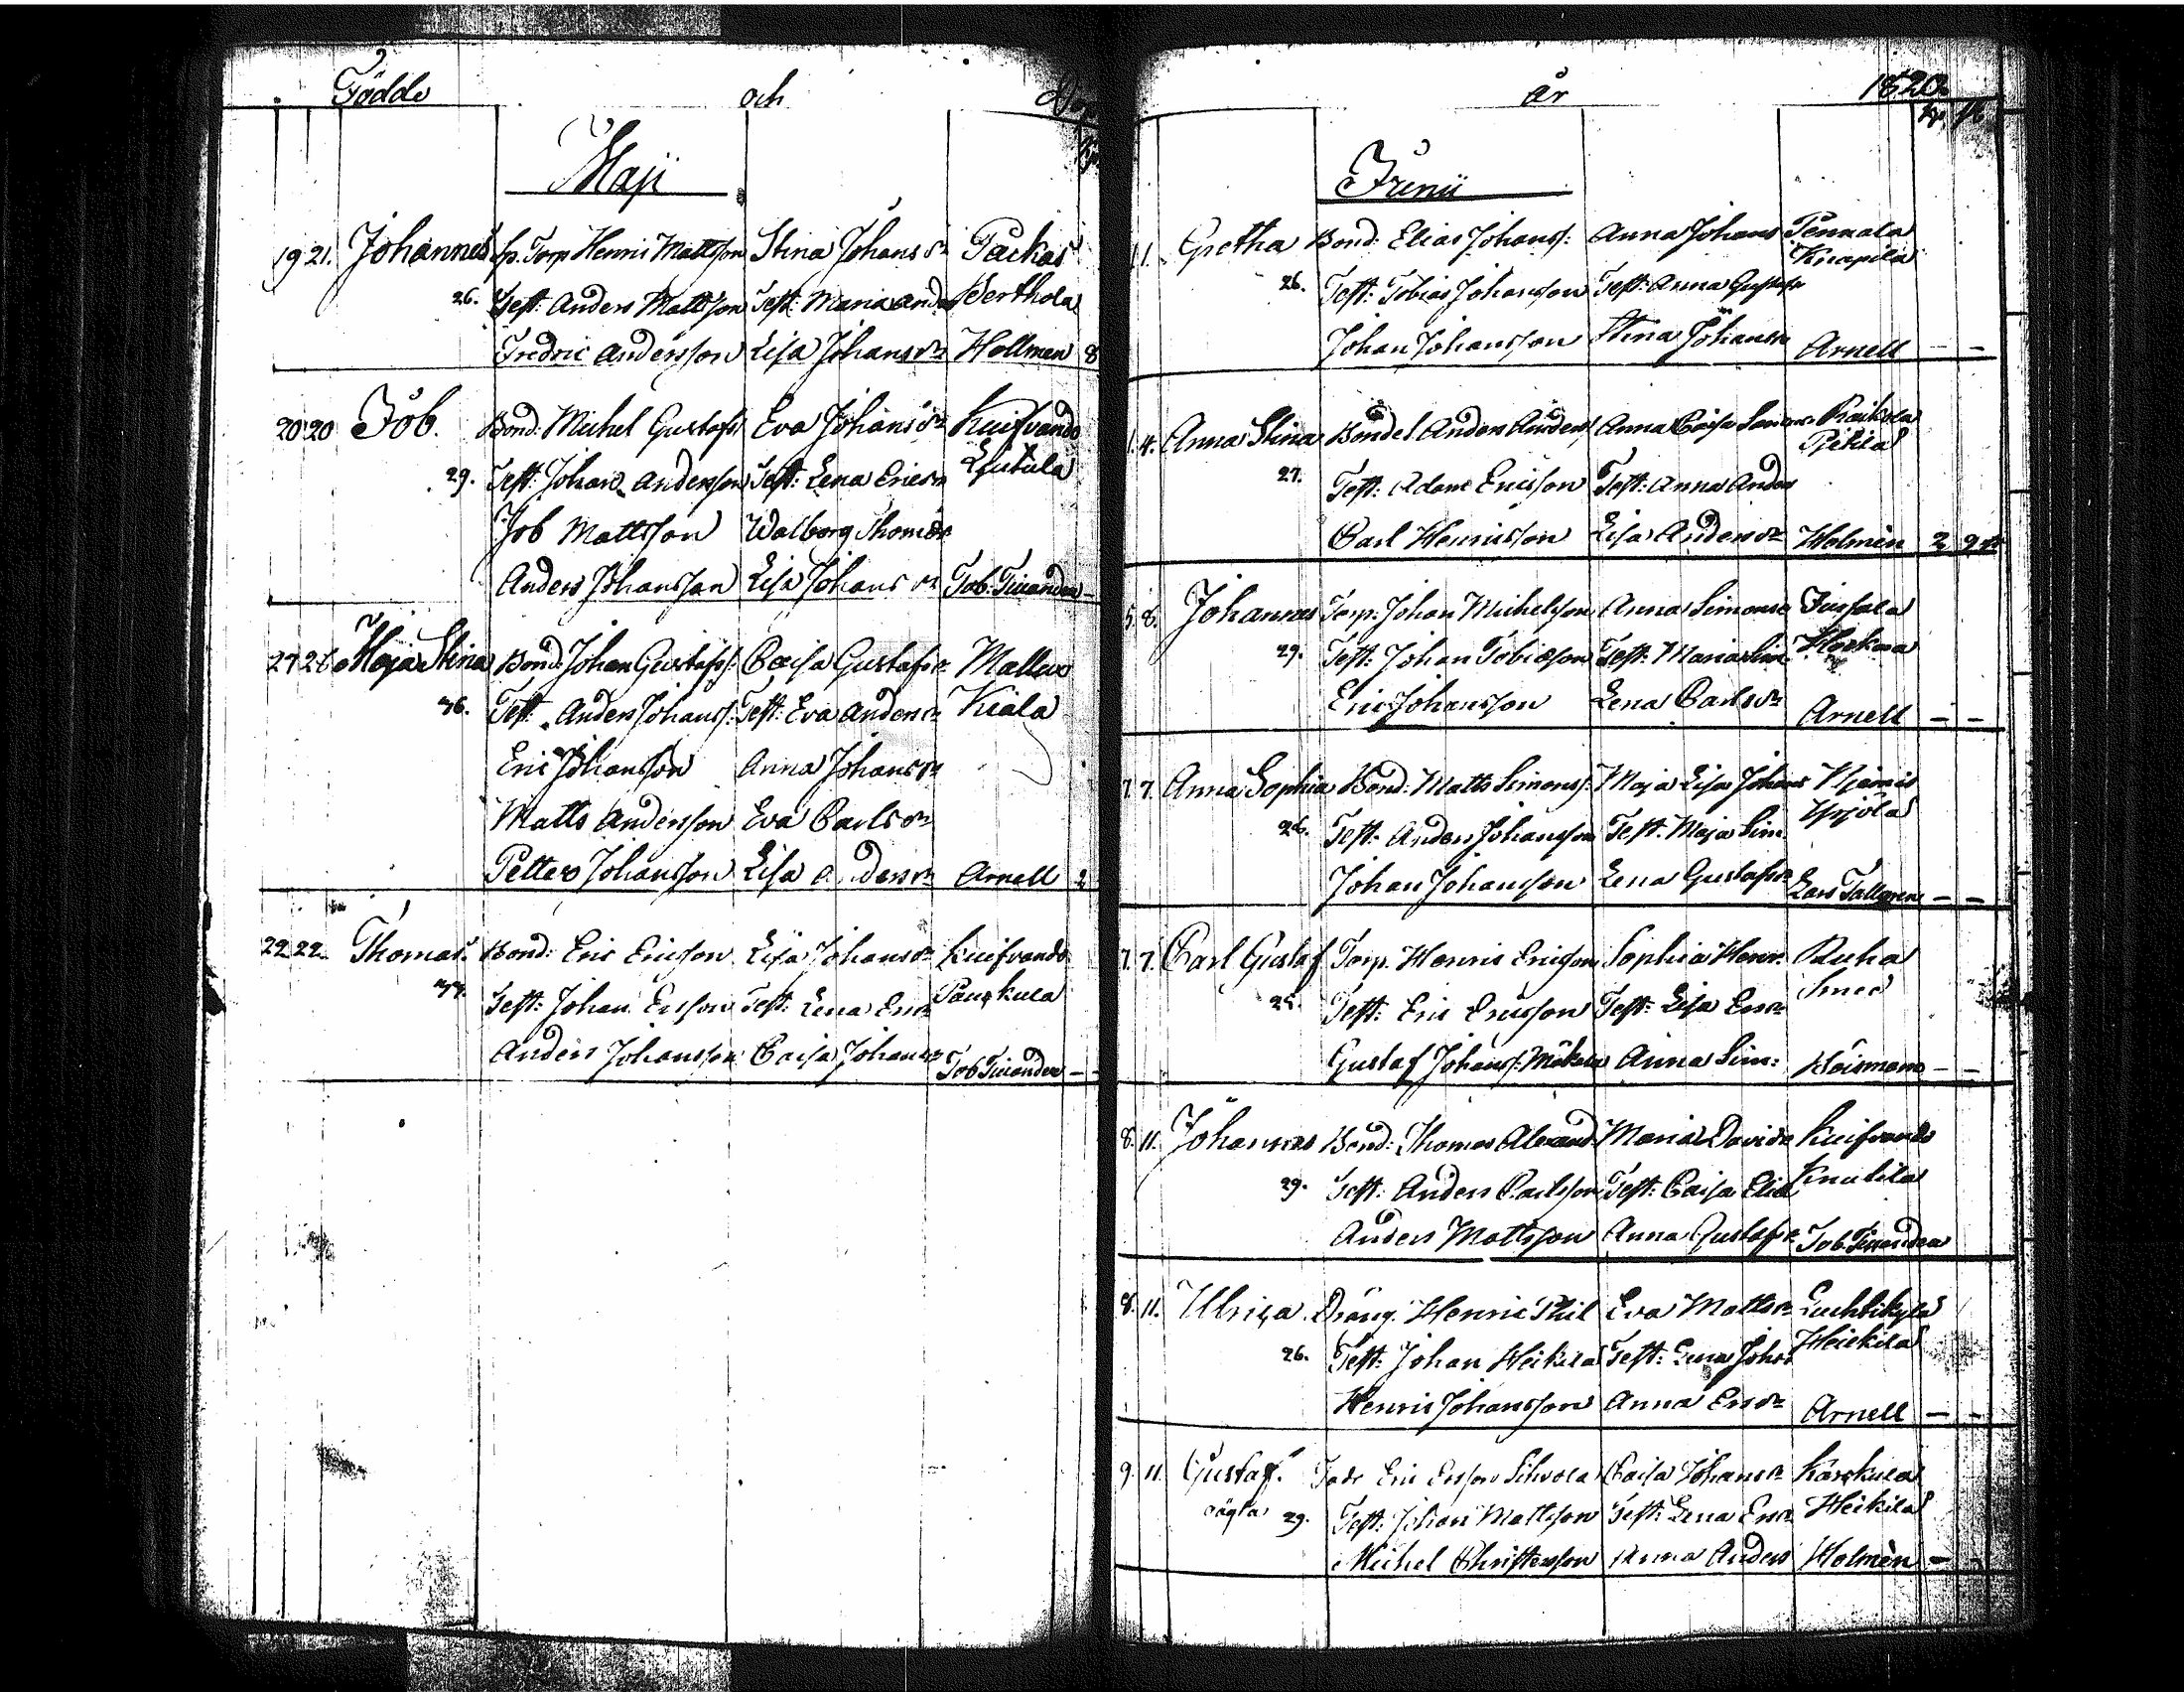 Födde och
Maji
19 21. Johannes Sp. Torp Henric Mattsson Stina Johans dr Packas
26. Test: Anders Mattsson Test: Maria Anders Berthola
Fredric Andersson Lisa Johans dr Hollmen 8
20 20 Job. Bond: Michel Gustafs Eva Johans dr Kuifvando
29. Test: Johan Andersson Test: Lena Erics dr
Job Mattsson Walborg Thomas
Anders Johansson Lisa Johans dr Job: Tuiander
27 28 Maja Stina Bond: Johan Gustafss: Caisa Gustafs dr Mallus
36. Test: Anders Johanss: Test: Eva Anders dr Kiala
Eric Johansson Anna Johans dr
Matts Andersson Eva Carls dr
Petter Johansson Lisa Anders dr Arnell 2
22 22. Thomas. Bond: Eric Ericsson Lisa Johans dr Kuifvando
37. Test: Johan Ersson Test: Lena Ers dr Pauskula
Anders Johansson Caisa Johans dr Job Tuiander - -
år 1820.
Junii
1 1. Gretha Bond: Elias Johanss: Anna Johans Pennala
Knapila
26. Test: Tobias Johansson Test: Anna Gustafs
Johan Johansson Stina Johans dr Arnell - -
1. 4. Anna Stina Bondel Anders Anderss Anna Caisa Raikola
Pietila
27. Test: Adam Ericsson Test: Anna Anders
Carl Henricsson Lisa Anders dr Holmèn 2 9
5. 8. Johannes Torp: Johan Michelsson Anna Simons dr
29. Test: Johan Tobiasson Test: Maria Sim
Eric Johansson Lena Carls dr Arnell - -
7. 7. Anna Sophia Bond: Matts Simonss: Maja Lisa Johans Njemis
Yrjölä
26. Test: Anders Johansson Test: Maja Sim
Johan Johansson Lena Gustafs dr Lars Tallgren - -
7. 7. Carl Gustaf Torp. Henric Ericsson Sophia Henr: Ruha
25. Test: Eric Ericsson Test: Lisa Ers dr
Gustaf Johanss: Anna Sim: - -
8. 11. Johannes Bond: Thomas Alexand: Maria Davids Kuifvando
29. Test: Anders Carlsson Test: Caisa Elid Knutila
Anders Mattsson Anna Gustafs dr Job Tuiander
8. 11. Ulrica. Dräng. Henric Phil Eva Matts dr
Heickilä
26. Test: Johan Heickilä Test: Lena Johs
Henric Johansson Anna Ers dr Arnell - -
9. 11. Gustaf. Eric Ersson Caisa Johans dr Karskula
oägta 29. Test: Johan Mattsson Test: Lena Ers dr Heickilä
Michel Christersson Anna Anders Holmèn - -